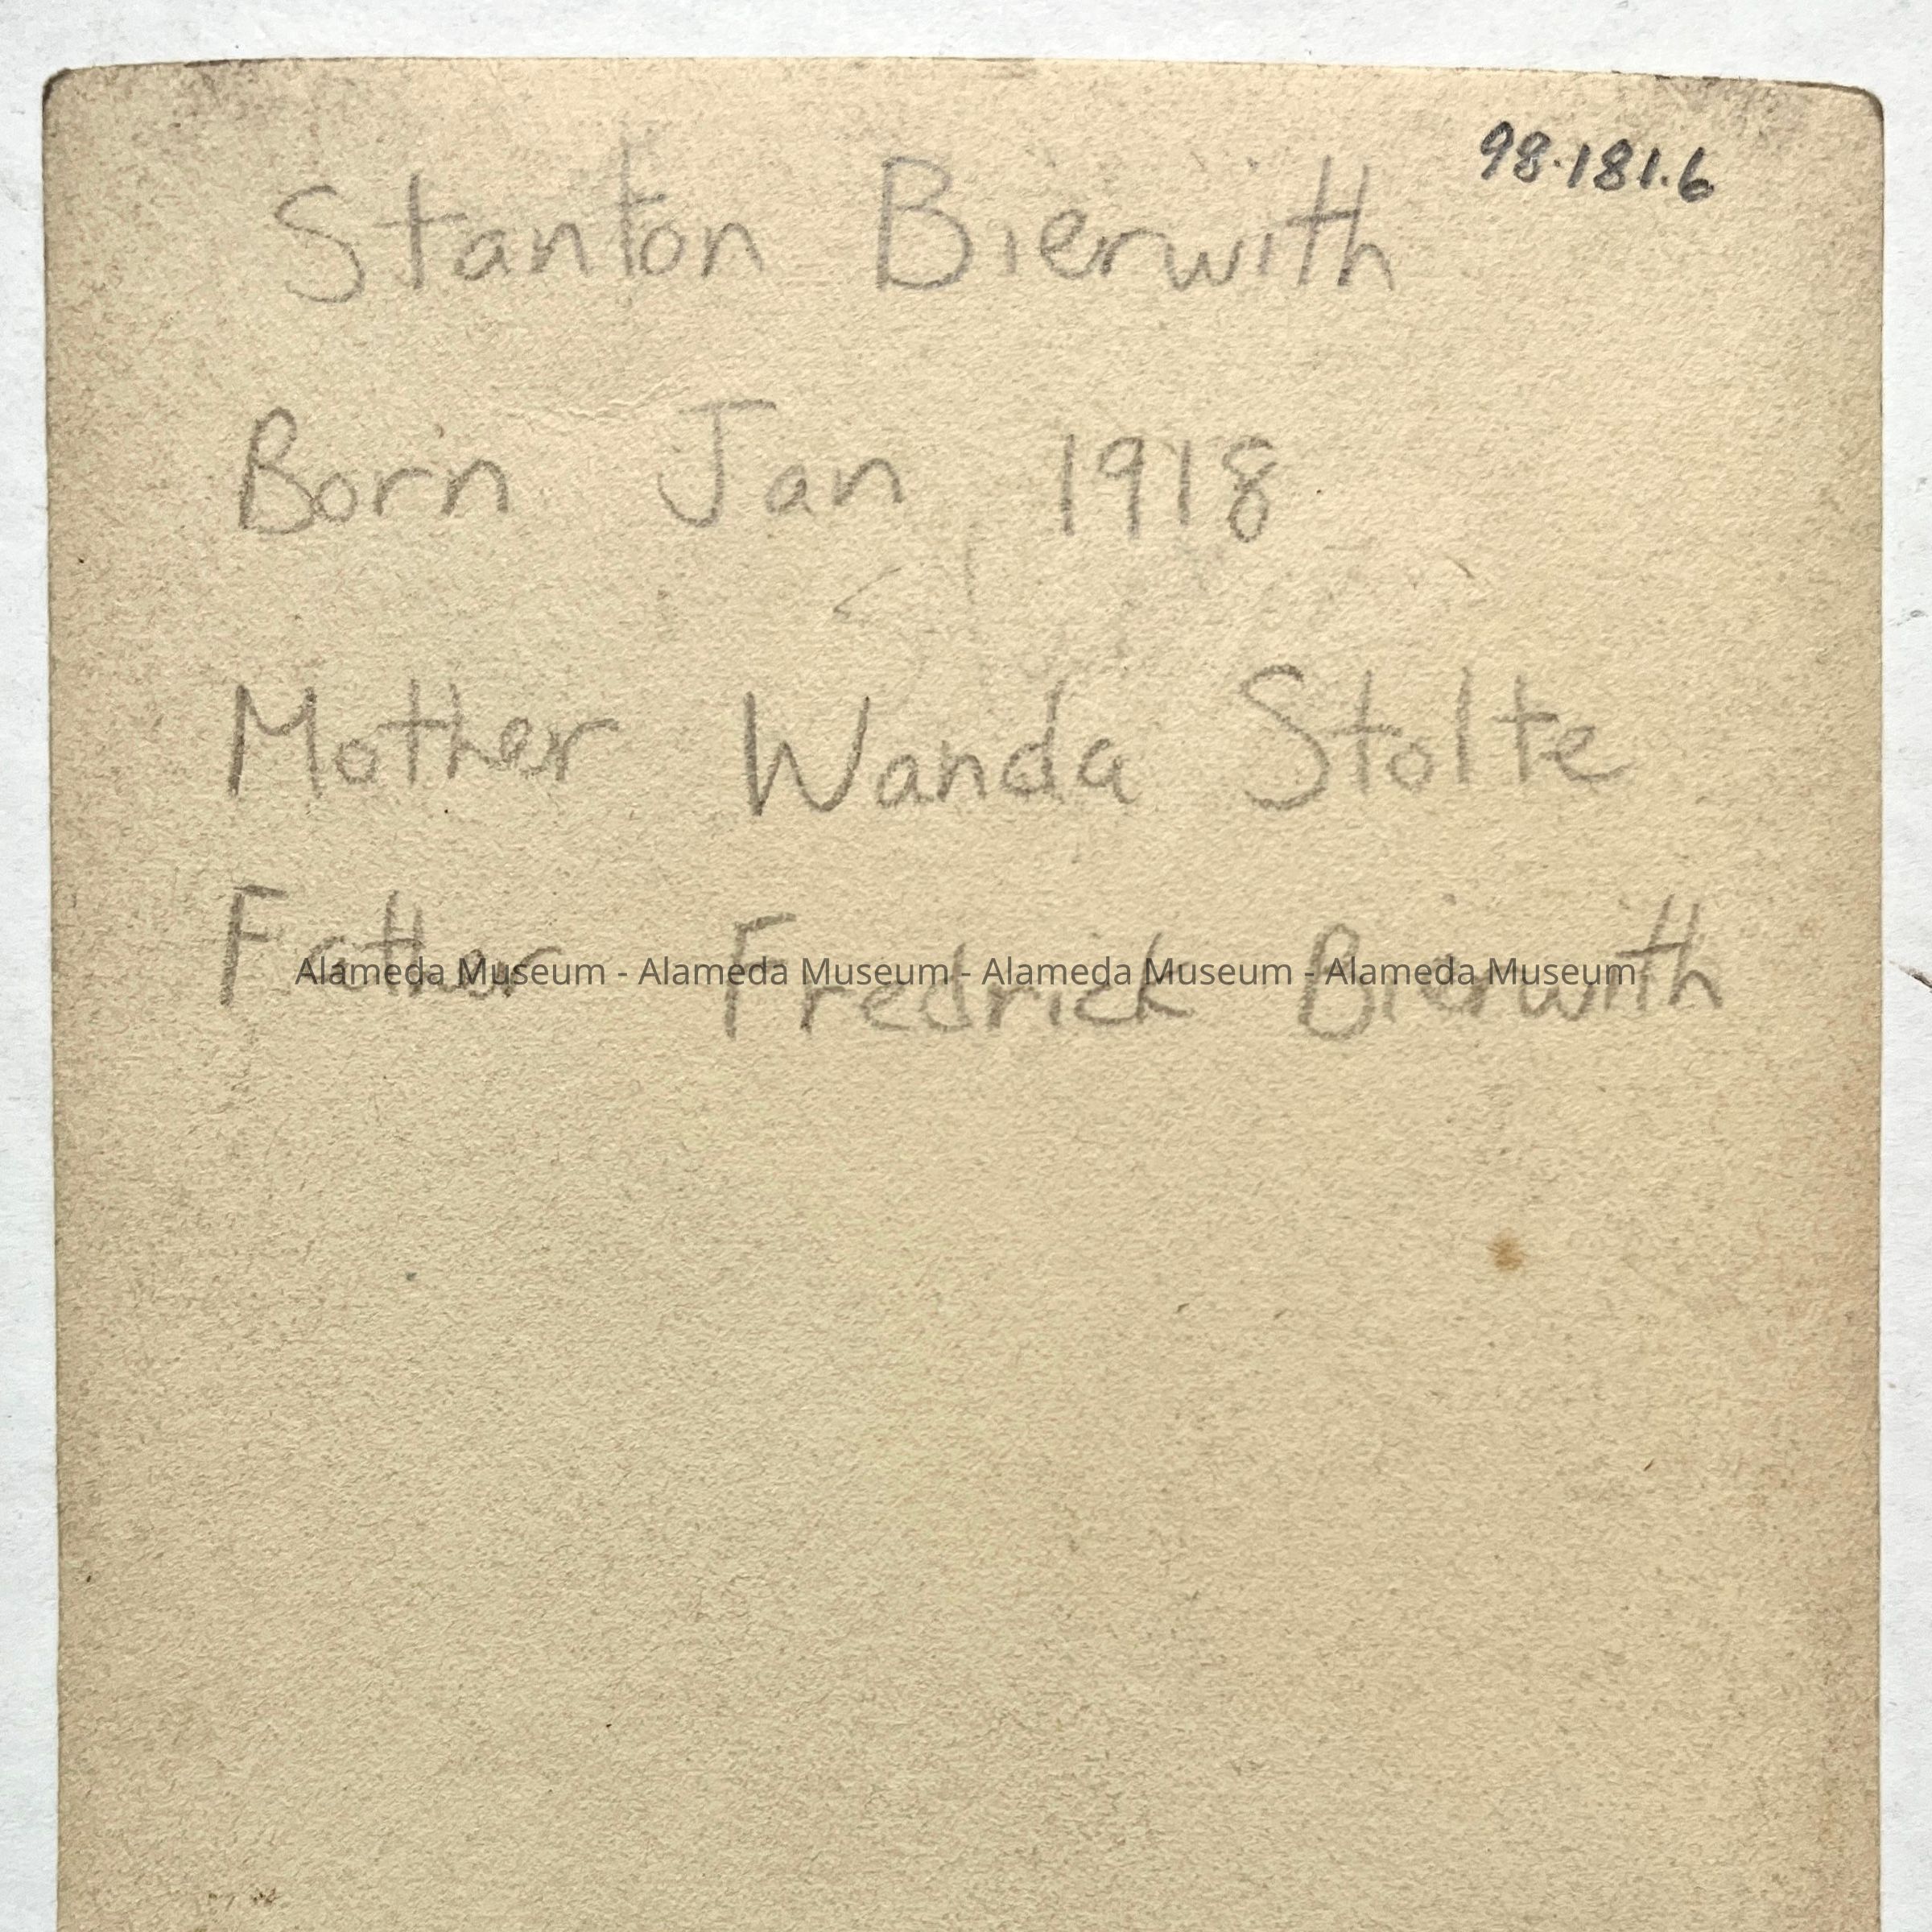 98.181.6
Stanton Bierwith
Born Jan 1918
Mother Wanda Stolte
Father Fredrick Bierwith
Alameda Museum - Alameda Museum - Alameda Museum - Alameda Museum